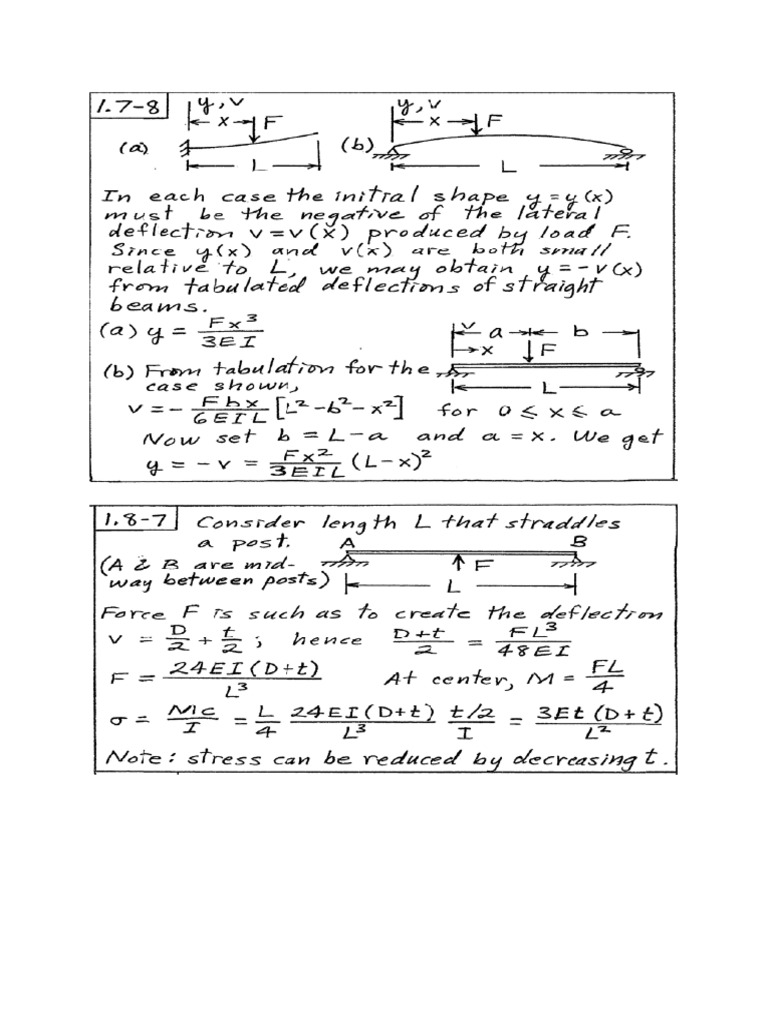 1.7-8
y, v
x F
(a)
L
y, v
x F
(b)
L
In each case the initial shape y = y(x)
must be the negative of the lateral
deflection v = v(x) produced by load F.
Since y(x) and v(x) are both small
relative to L, we may obtain y = -v(x)
from tabulated deflections of straight
beams.
(a) y = Fx³/3EI
(b) From tabulation for the
case shown,
v a b
x F
L
v = - Fbx/6EIL [L² - b² - x²] for 0 ≤ x ≤ a
Now set b = L - a and a = x. We get
y = -v = Fx²/3EIL (L-x)²
1.8-7 Consider length L that straddles
a post.
(A & B are mid-
way between posts)
A B
F
L
Force F is such as to create the deflection
v = D/2 + t/2 ; hence D+t/2 = FL³/48EI
F = 24EI(D+t)/L³ At center, M = FL/4
σ = Mc/I = L/4 24EI(D+t)/L³ t/2/I = 3Et(D+t)/L²
Note: stress can be reduced by decreasing t.